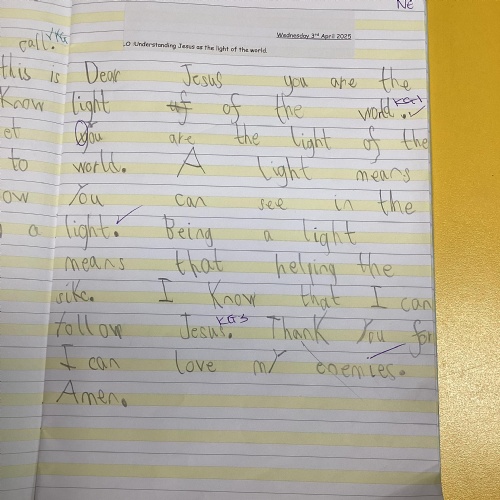 Ne
Wednesday 3rd April 2025
LO :Understanding Jesus as the light of the world.
call.
this is
Know
et
to
ow
a
Dear Jesus you are the
light of of the world.
You are the light of the
world. A light means
You can see in the
light. Being a light
means that helping the
sike. I Know that I can
follow Jesus. Thank You for
I can love my enemies.
Amen.